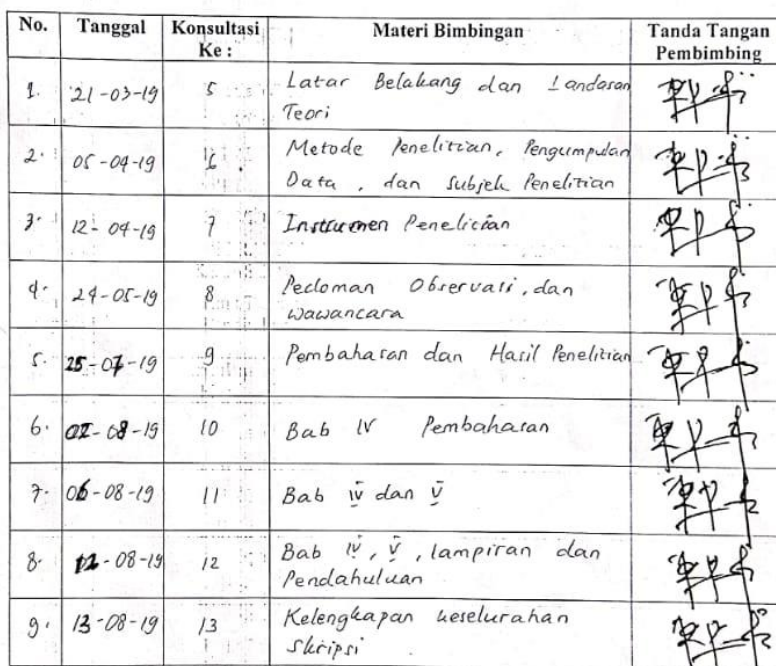 No. Tanggal Konsultasi Ke : Materi Bimbingan Tanda Tangan Pembimbing
1. 21-03-19 5 Latar Belakang dan Landasan
Teori
2. 05-04-19 6 Metode Penelitian, Pengumpulan
Data, dan Subjek Penelitian
3. 12-04-19 7 Instrumen Penelitian
4. 24-05-19 8 Pedoman Observasi, dan
wawancara
5. 25-07-19 9 Pembahasan dan Hasil Penelitian
6. 02-08-19 10 Bab IV Pembahasan
7. 06-08-19 11 Bab IV dan V
8. 12-08-19 12 Bab IV, V, lampiran dan
Pendahuluan
9. 13-08-19 13 Kelengkapan keselurahan
Skripsi